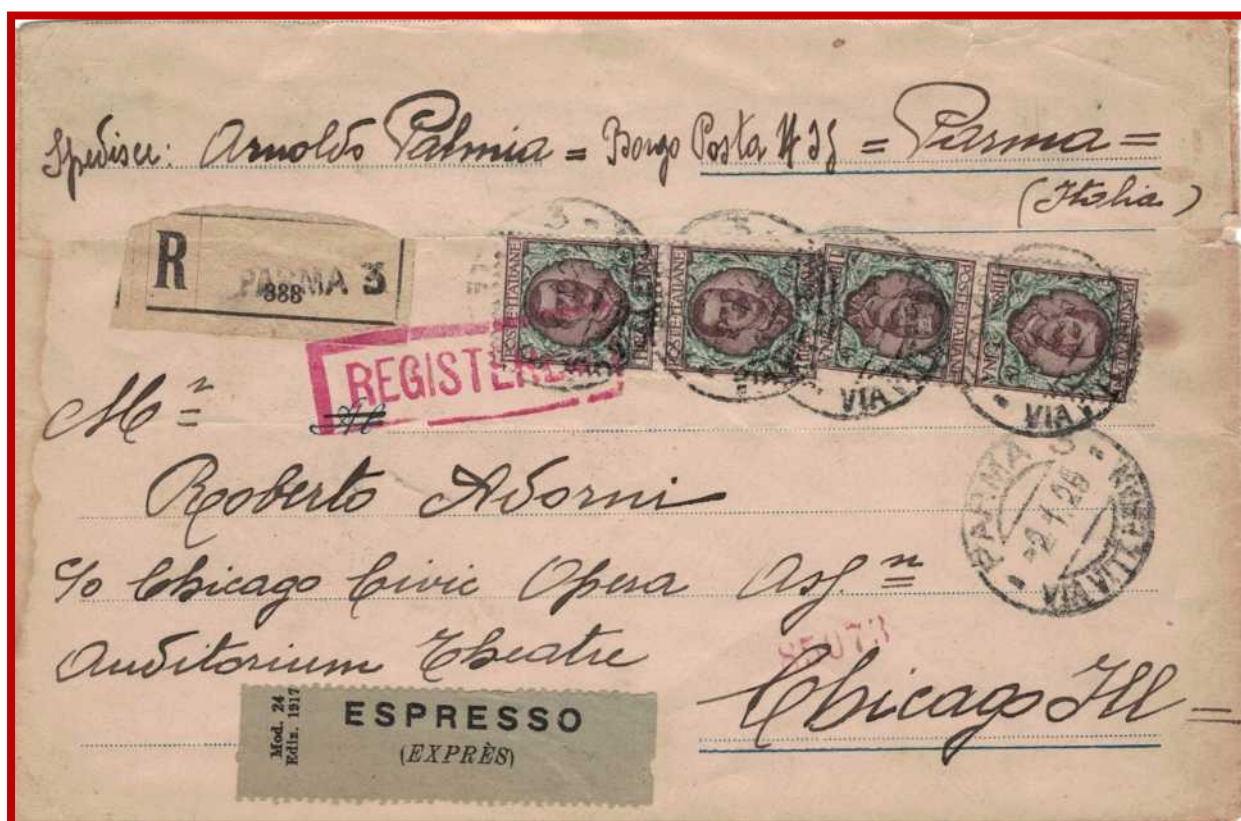 Spedisce: Arnoldo Palmia = Borgo Posta N = Parma =
(Italia)
R
PARMA 3
888
REGISTERED
POSTE ITALIANE
POSTE ITALIANE
POSTE ITALIANE
VIA
VIA
Mr
Roberto Adorni
PARMA 3
c/o Chicago Civic Opera Assn
Auditorium Theatre
85073
Chicago Ill =
Mod. 24
Ediz. 1917
ESPRESSO
(EXPRÈS)